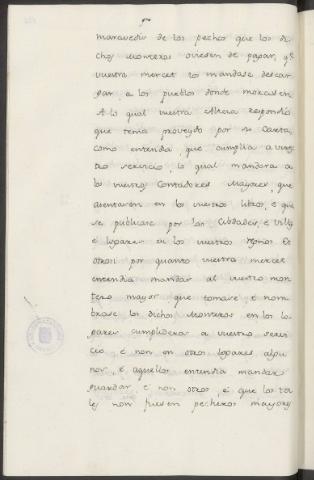 maravedis de los pechos que los di
chos Monteros oviesen de pagar, qe
vuestra merced lo mandase descar
gar, a los pueblos donde morasen
A lo qual vuestra Alteza respondio
que tenia proveydo por su Carta,
como entendia, que cumplia a vues
tro servicio, lo qual mandara a
los vuestros Contadores Mayores, que
asentaren en los vuestros libros, e que
se publicare por las Cibdades, e Villas
e logares de los vuestros regnos Et
otrosi por quanto vuestra merced
entendia mandar al vuestro mon
tero mayor que tomare, e nom
brase los dichos Monteros en los lo
gares cumplideros a vuestro servi
cio, e non en otros logares algu
nos, e aquellos entendia mandar
guardar, e non otros, e que los ta
les non fuesen pecheros mayores